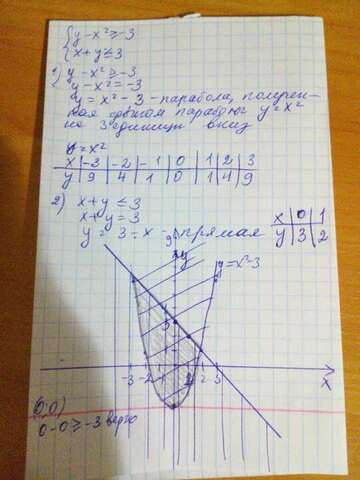 {y-x²≥-3
{x+y≤3
1) y-x²≥-3
y-x²=-3
y=x²-3 - парабола, получен-
ная сдвигом параболы y=x²
на 3 единицы вниз
y=x²
x | -3 | -2 | -1 | 0 | 1 | 2 | 3
y | 9 | 4 | 1 | 0 | 1 | 4 | 9
2) x+y≤3
x+y=3
y=3-x - прямая
x | 0 | 1
y | 3 | 2
y
y=x²-3
-3 -2 2 3
x
(0;0)
0-0≥-3 верно